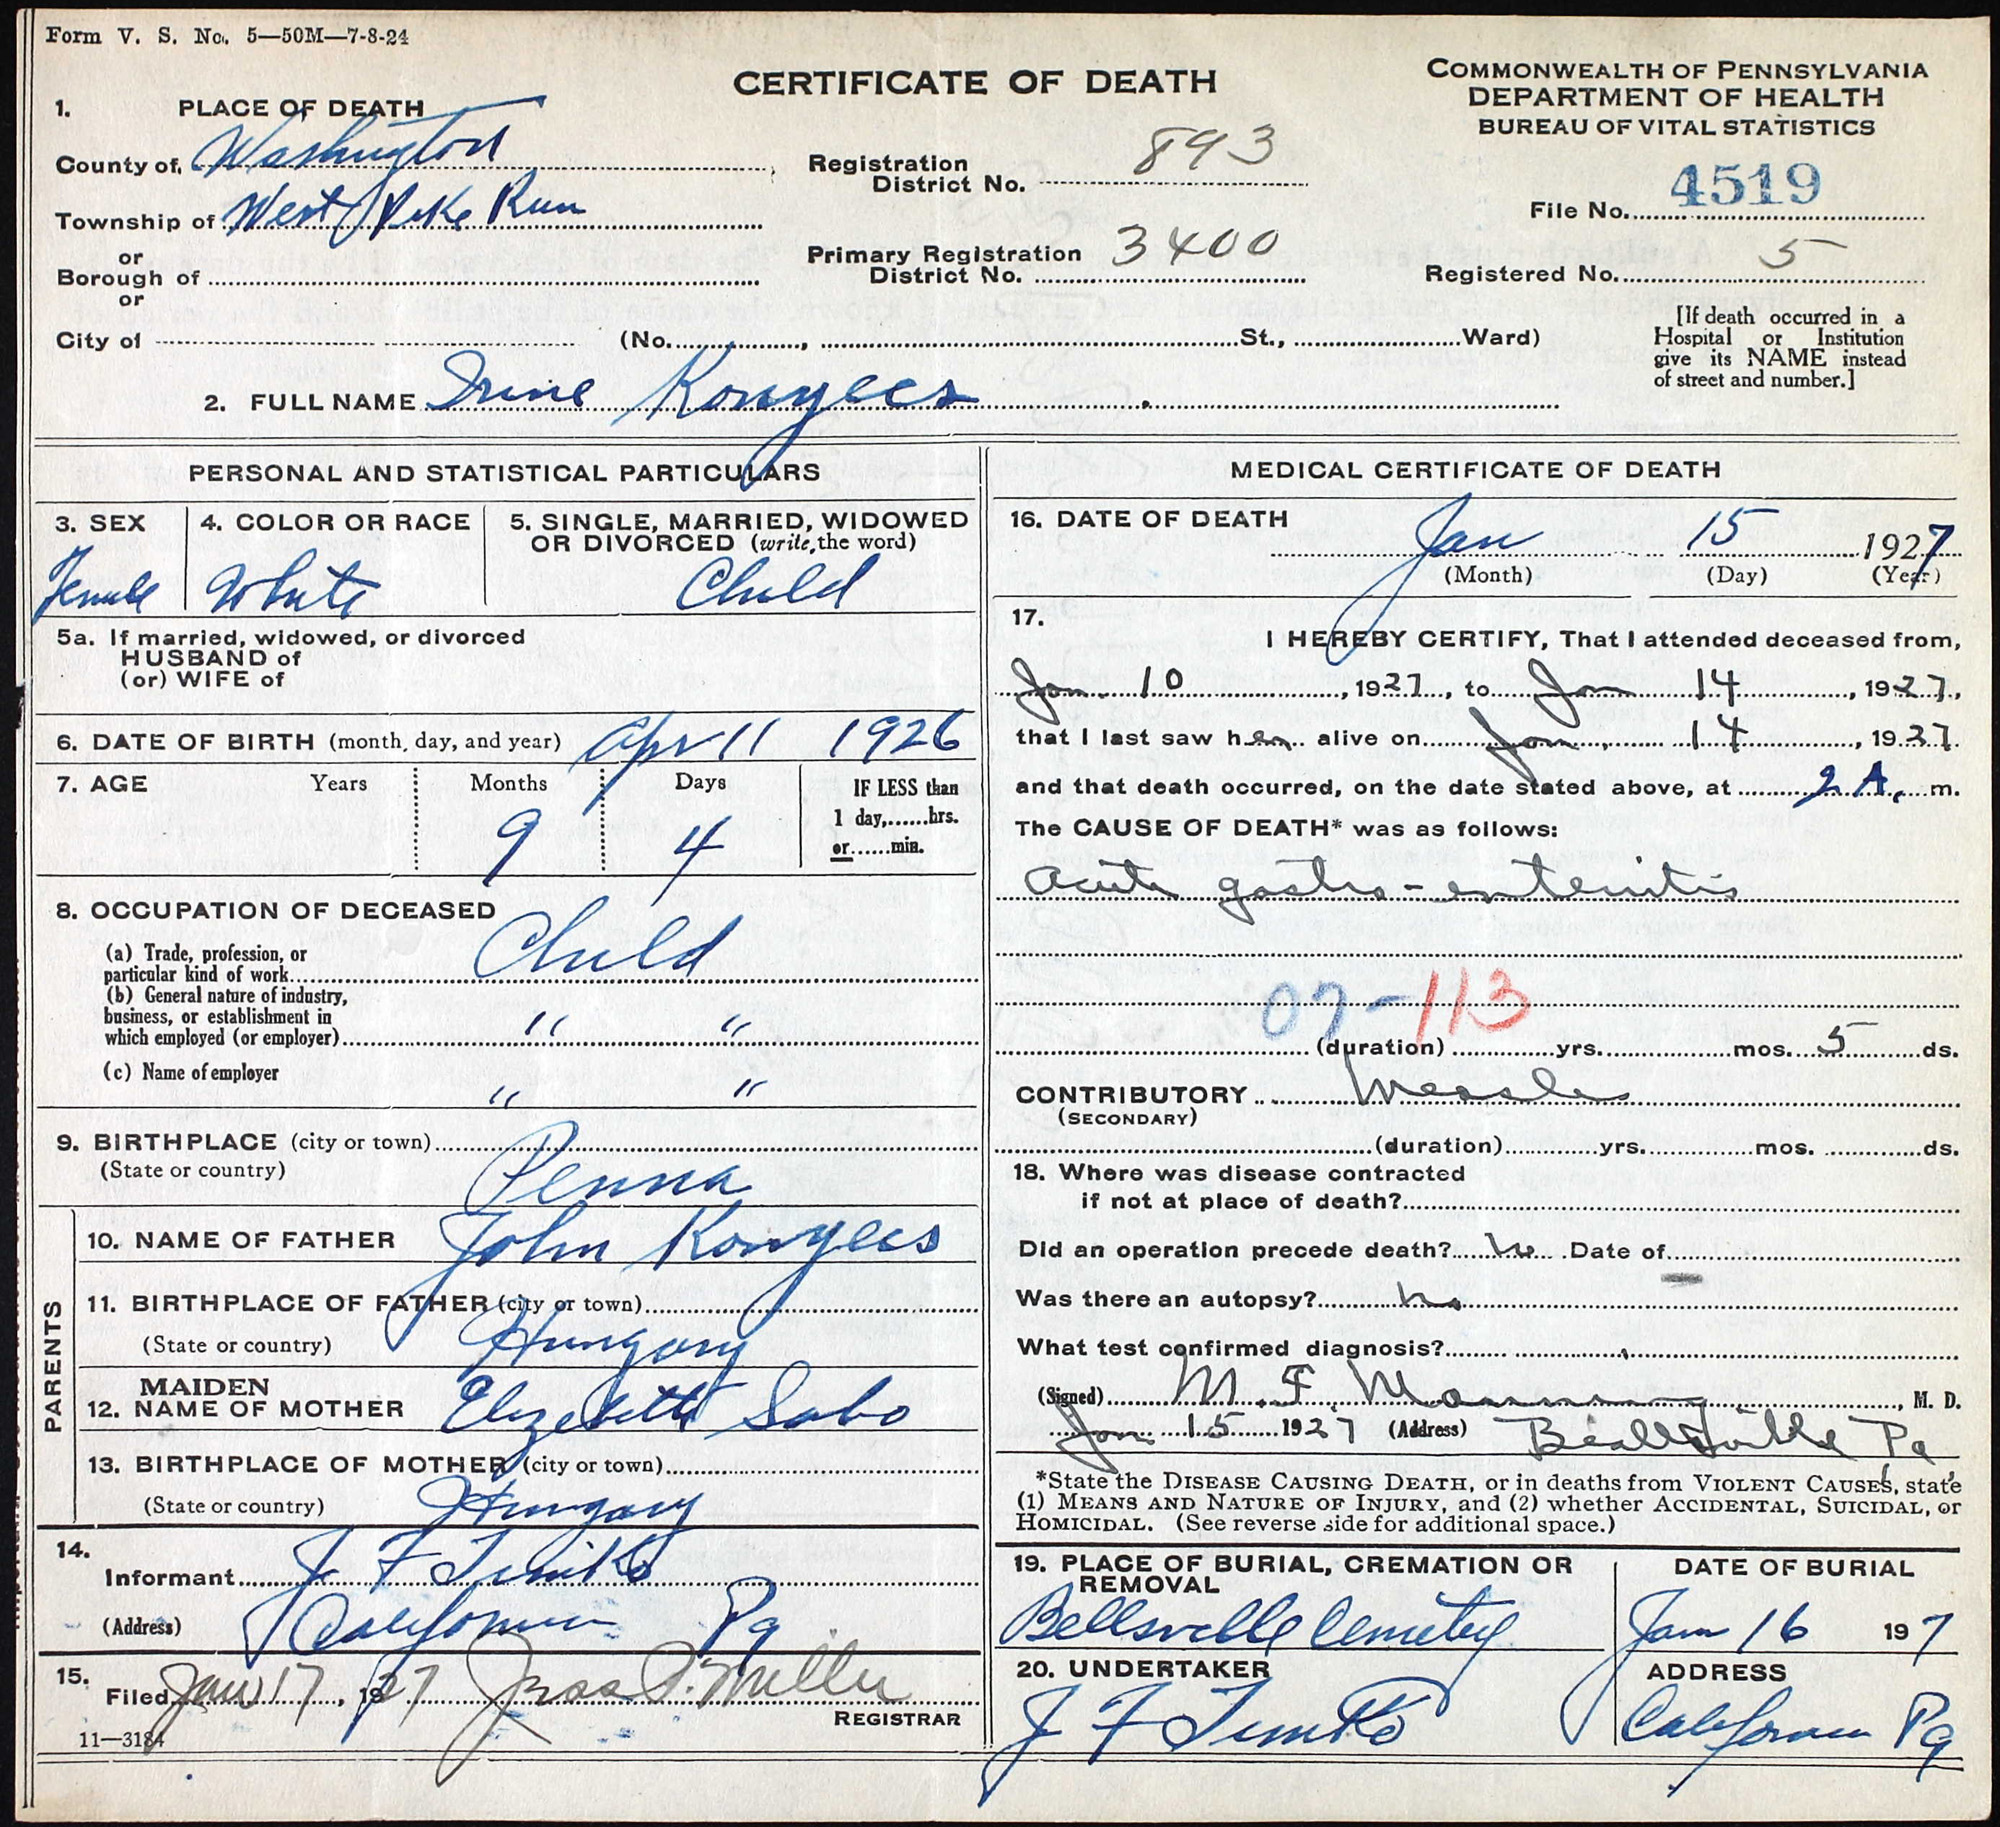 Form V. S. No. 5—50M—7-8-24
CERTIFICATE OF DEATH
COMMONWEALTH OF PENNSYLVANIA
DEPARTMENT OF HEALTH
BUREAU OF VITAL STATISTICS
1. PLACE OF DEATH
County of Washington
Township of West Pike Run
or
Borough of
or
City of (No. , St., Ward)
Registration District No. 893
Primary Registration District No. 3400
File No. 4519
Registered No. 5
[If death occurred in a
Hospital or Institution
give its NAME instead
of street and number.]
2. FULL NAME Irine Konyecs
PERSONAL AND STATISTICAL PARTICULARS
3. SEX
Female
4. COLOR OR RACE
White
5. SINGLE, MARRIED, WIDOWED
OR DIVORCED (write the word)
Child
5a. If married, widowed, or divorced
HUSBAND of
(or) WIFE of
6. DATE OF BIRTH (month, day, and year) Apr 11 1926
7. AGE Years Months Days
9 4
IF LESS than
1 day,......hrs.
or......min.
8. OCCUPATION OF DECEASED
(a) Trade, profession, or
particular kind of work Child
(b) General nature of industry,
business, or establishment in
which employed (or employer) " "
(c) Name of employer " "
9. BIRTHPLACE (city or town)
(State or country) Penna
PARENTS
10. NAME OF FATHER John Konyecs
11. BIRTHPLACE OF FATHER (city or town)
(State or country) Hungary
12. MAIDEN NAME OF MOTHER Elizebeth Sabo
13. BIRTHPLACE OF MOTHER (city or town)
(State or country) Hungary
14.
Informant J F Timko
(Address) California Pa
15.
Filed Jan 17, 1927 Jess P. Miller
REGISTRAR
11—3184
MEDICAL CERTIFICATE OF DEATH
16. DATE OF DEATH
Jan 15 1927
(Month) (Day) (Year)
17.
I HEREBY CERTIFY, That I attended deceased from,
Jan. 10, 1927, to Jan 14, 1927,
that I last saw her alive on Jan. 14, 1927.
and that death occurred, on the date stated above, at 2 A. m.
The CAUSE OF DEATH* was as follows:
Acute gastro-enteritis
07-113
(duration) yrs. mos. 5 ds.
CONTRIBUTORY Measles
(SECONDARY)
(duration) yrs. mos. ds.
18. Where was disease contracted
if not at place of death?
Did an operation precede death? No Date of
Was there an autopsy? No
What test confirmed diagnosis?
(Signed) M. F. Manning, M. D.
Jan 15 1927 (Address) Beallsville Pa
*State the DISEASE CAUSING DEATH, or in deaths from VIOLENT CAUSES, state
(1) MEANS AND NATURE OF INJURY, and (2) whether ACCIDENTAL, SUICIDAL, or
HOMICIDAL. (See reverse side for additional space.)
19. PLACE OF BURIAL, CREMATION OR
REMOVAL
Bellsville Cemetey
DATE OF BURIAL
Jan 16 197
20. UNDERTAKER
J F Timko
ADDRESS
California Pa